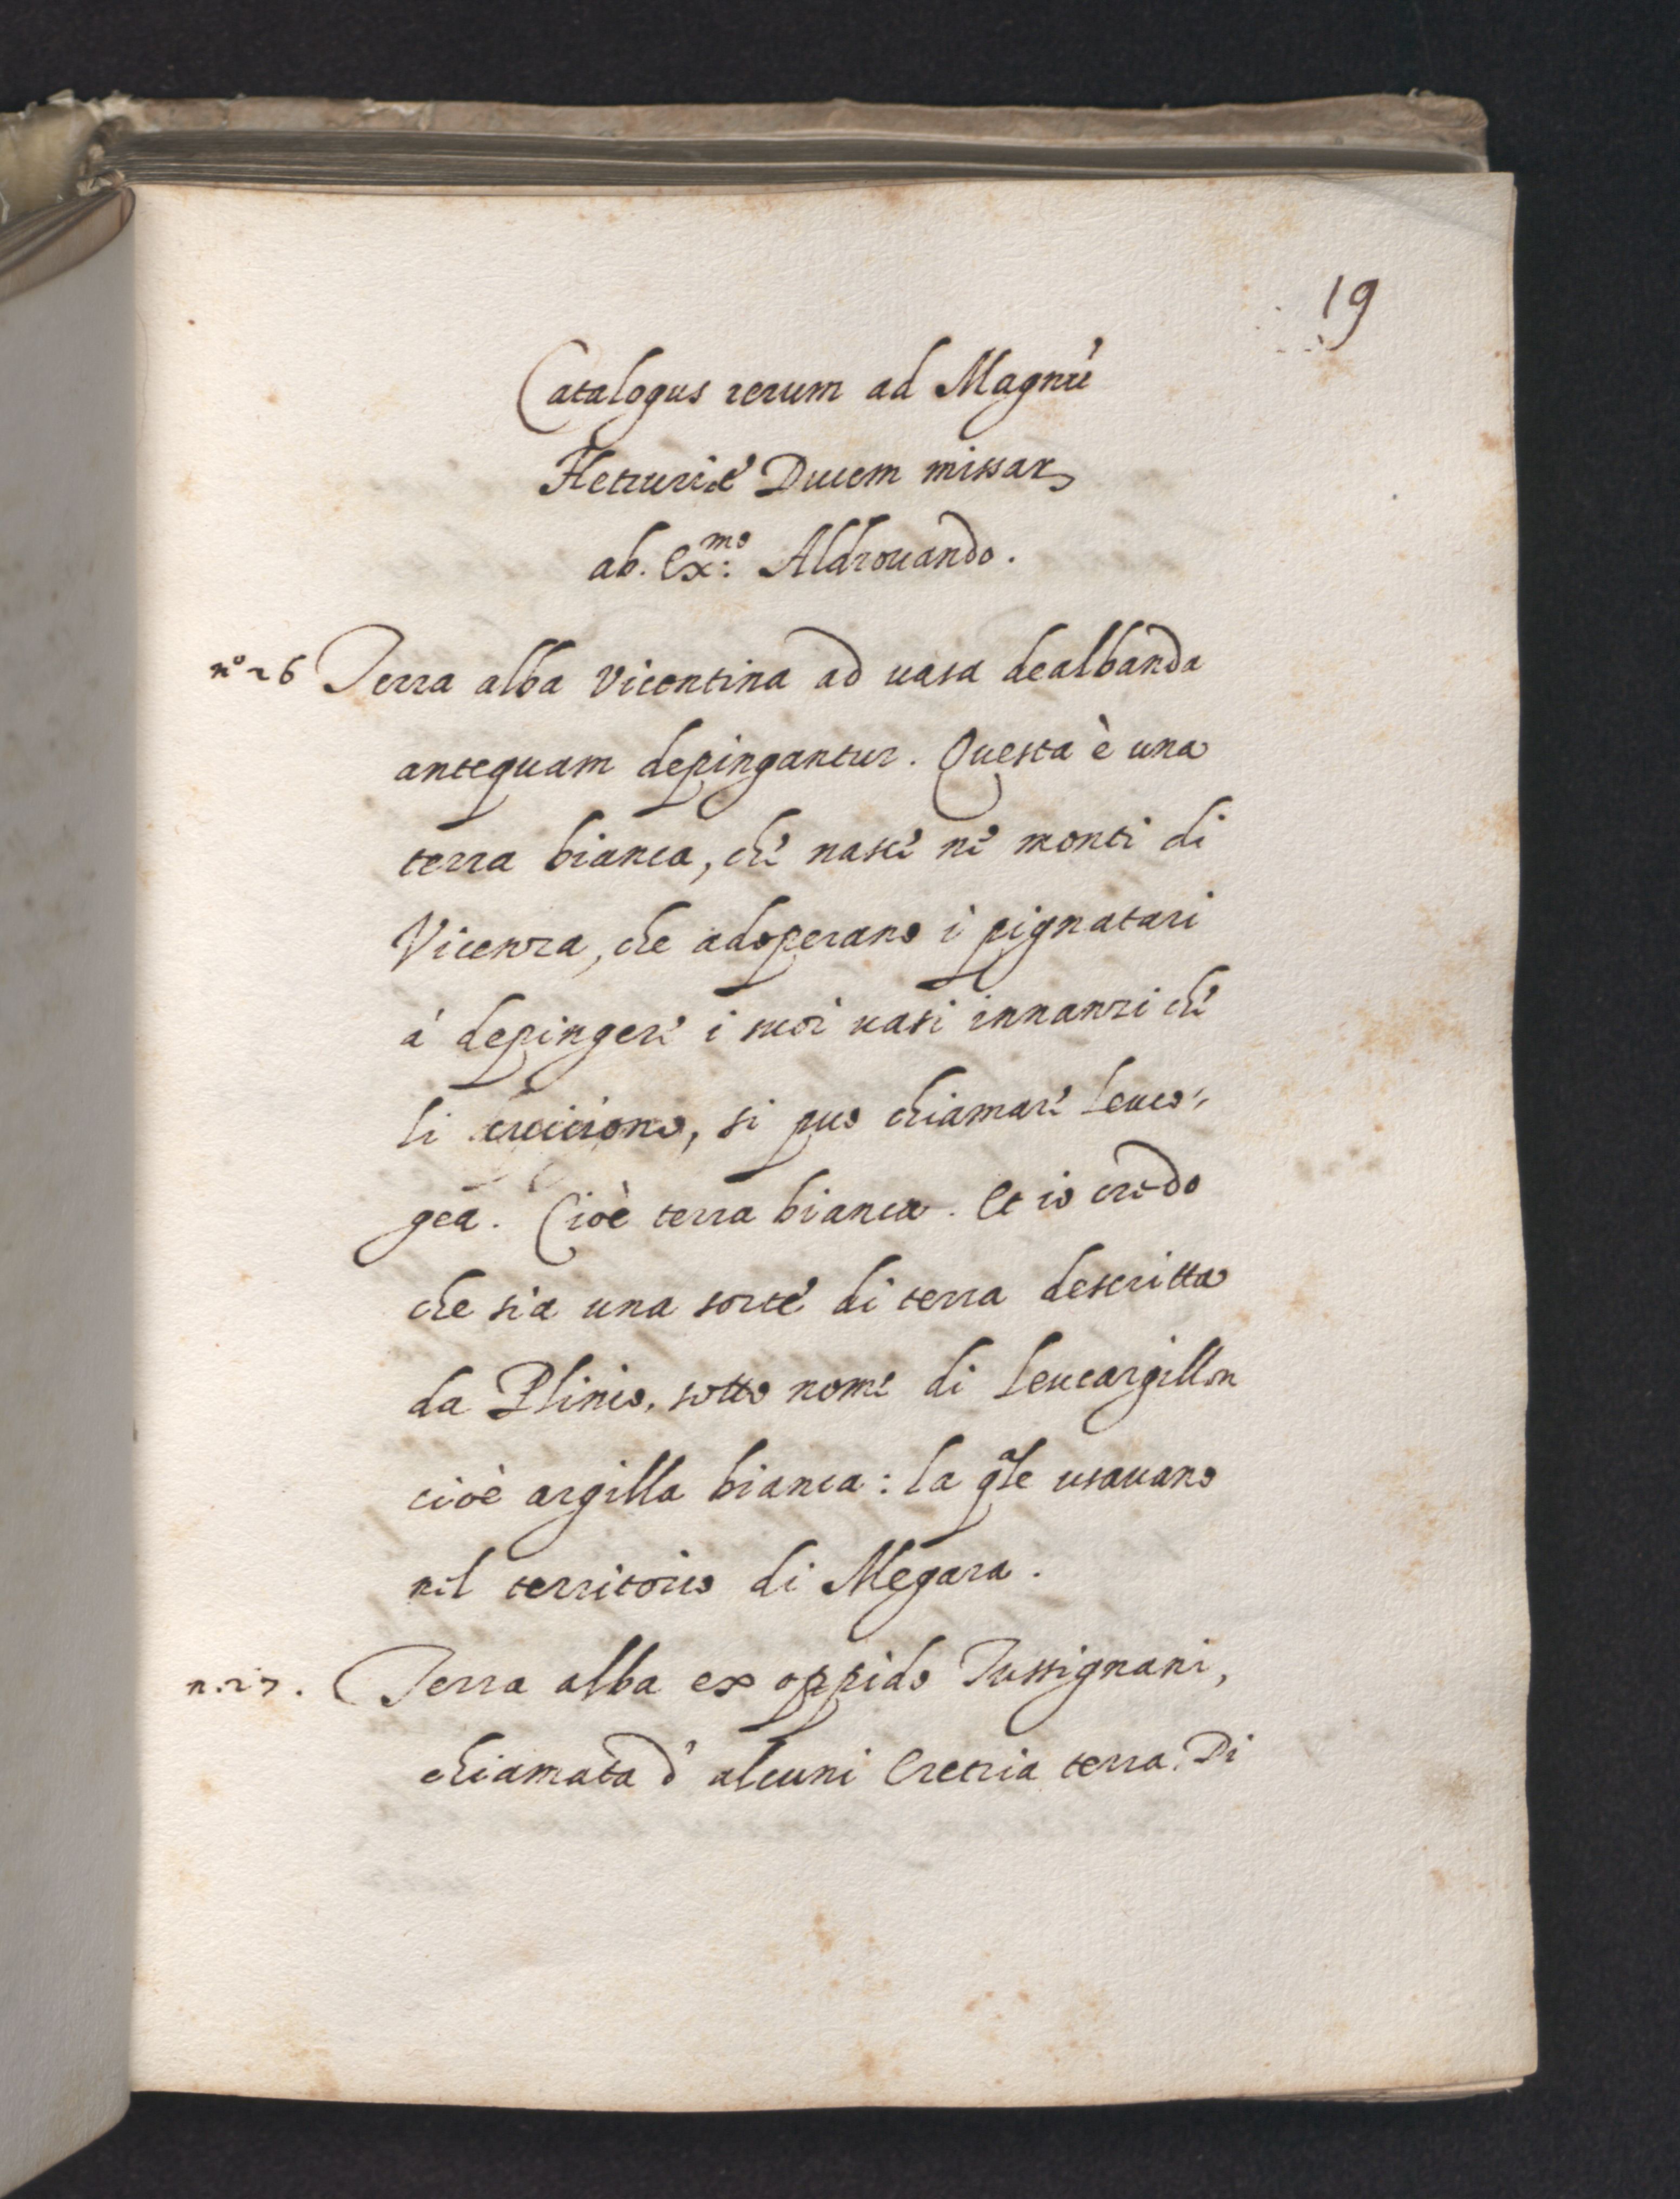 19
Catalogus rerum ad Magnũ
Hetrurię Ducem missarꝝ
ab. Ex:mo Aldrouando.
no 26 Terra alba Vicentina ad uasa dealbanda
antequam depingantur. Questa è una
terra bianca, che nasce ne monti di
Vicenza, che adoperano i pignatari
à depingere i suoi uasi innanzi che
li , si puo chiamare Leuco-
gea. Cioè terra bianca. Et io credo
che sia una sorte di terra descritta
da Plinio, sotto nome di Leucargillon
cioè argilla bianca: la qãle usauano
nel territorio di Megara.
n. 27. Terra alba ex oppido Tussignani,
chiamata d' alcuni Eretria terra. Di